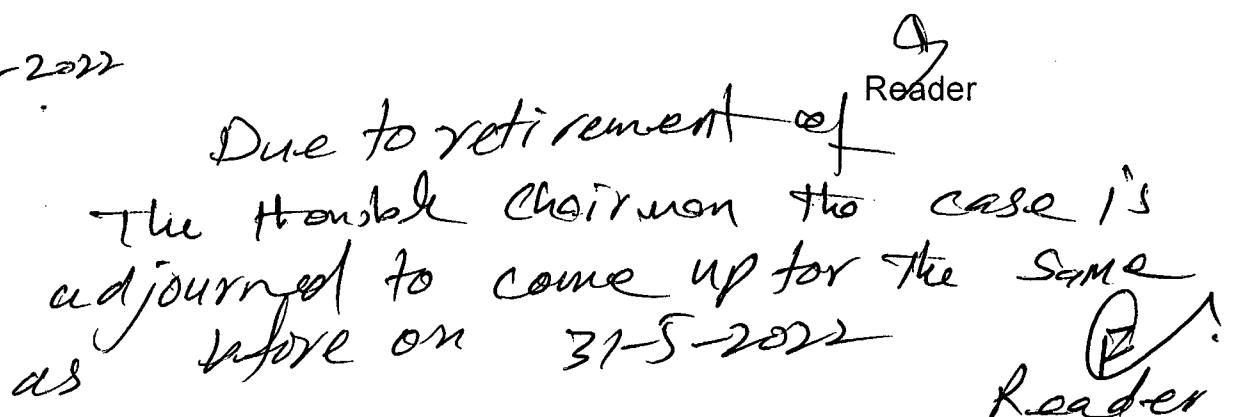 -2022
Reader
Due to retirement of
The Hon,ble Chairman the case is
adjourned to come up for the same
as before on 31-5-2022
Reader